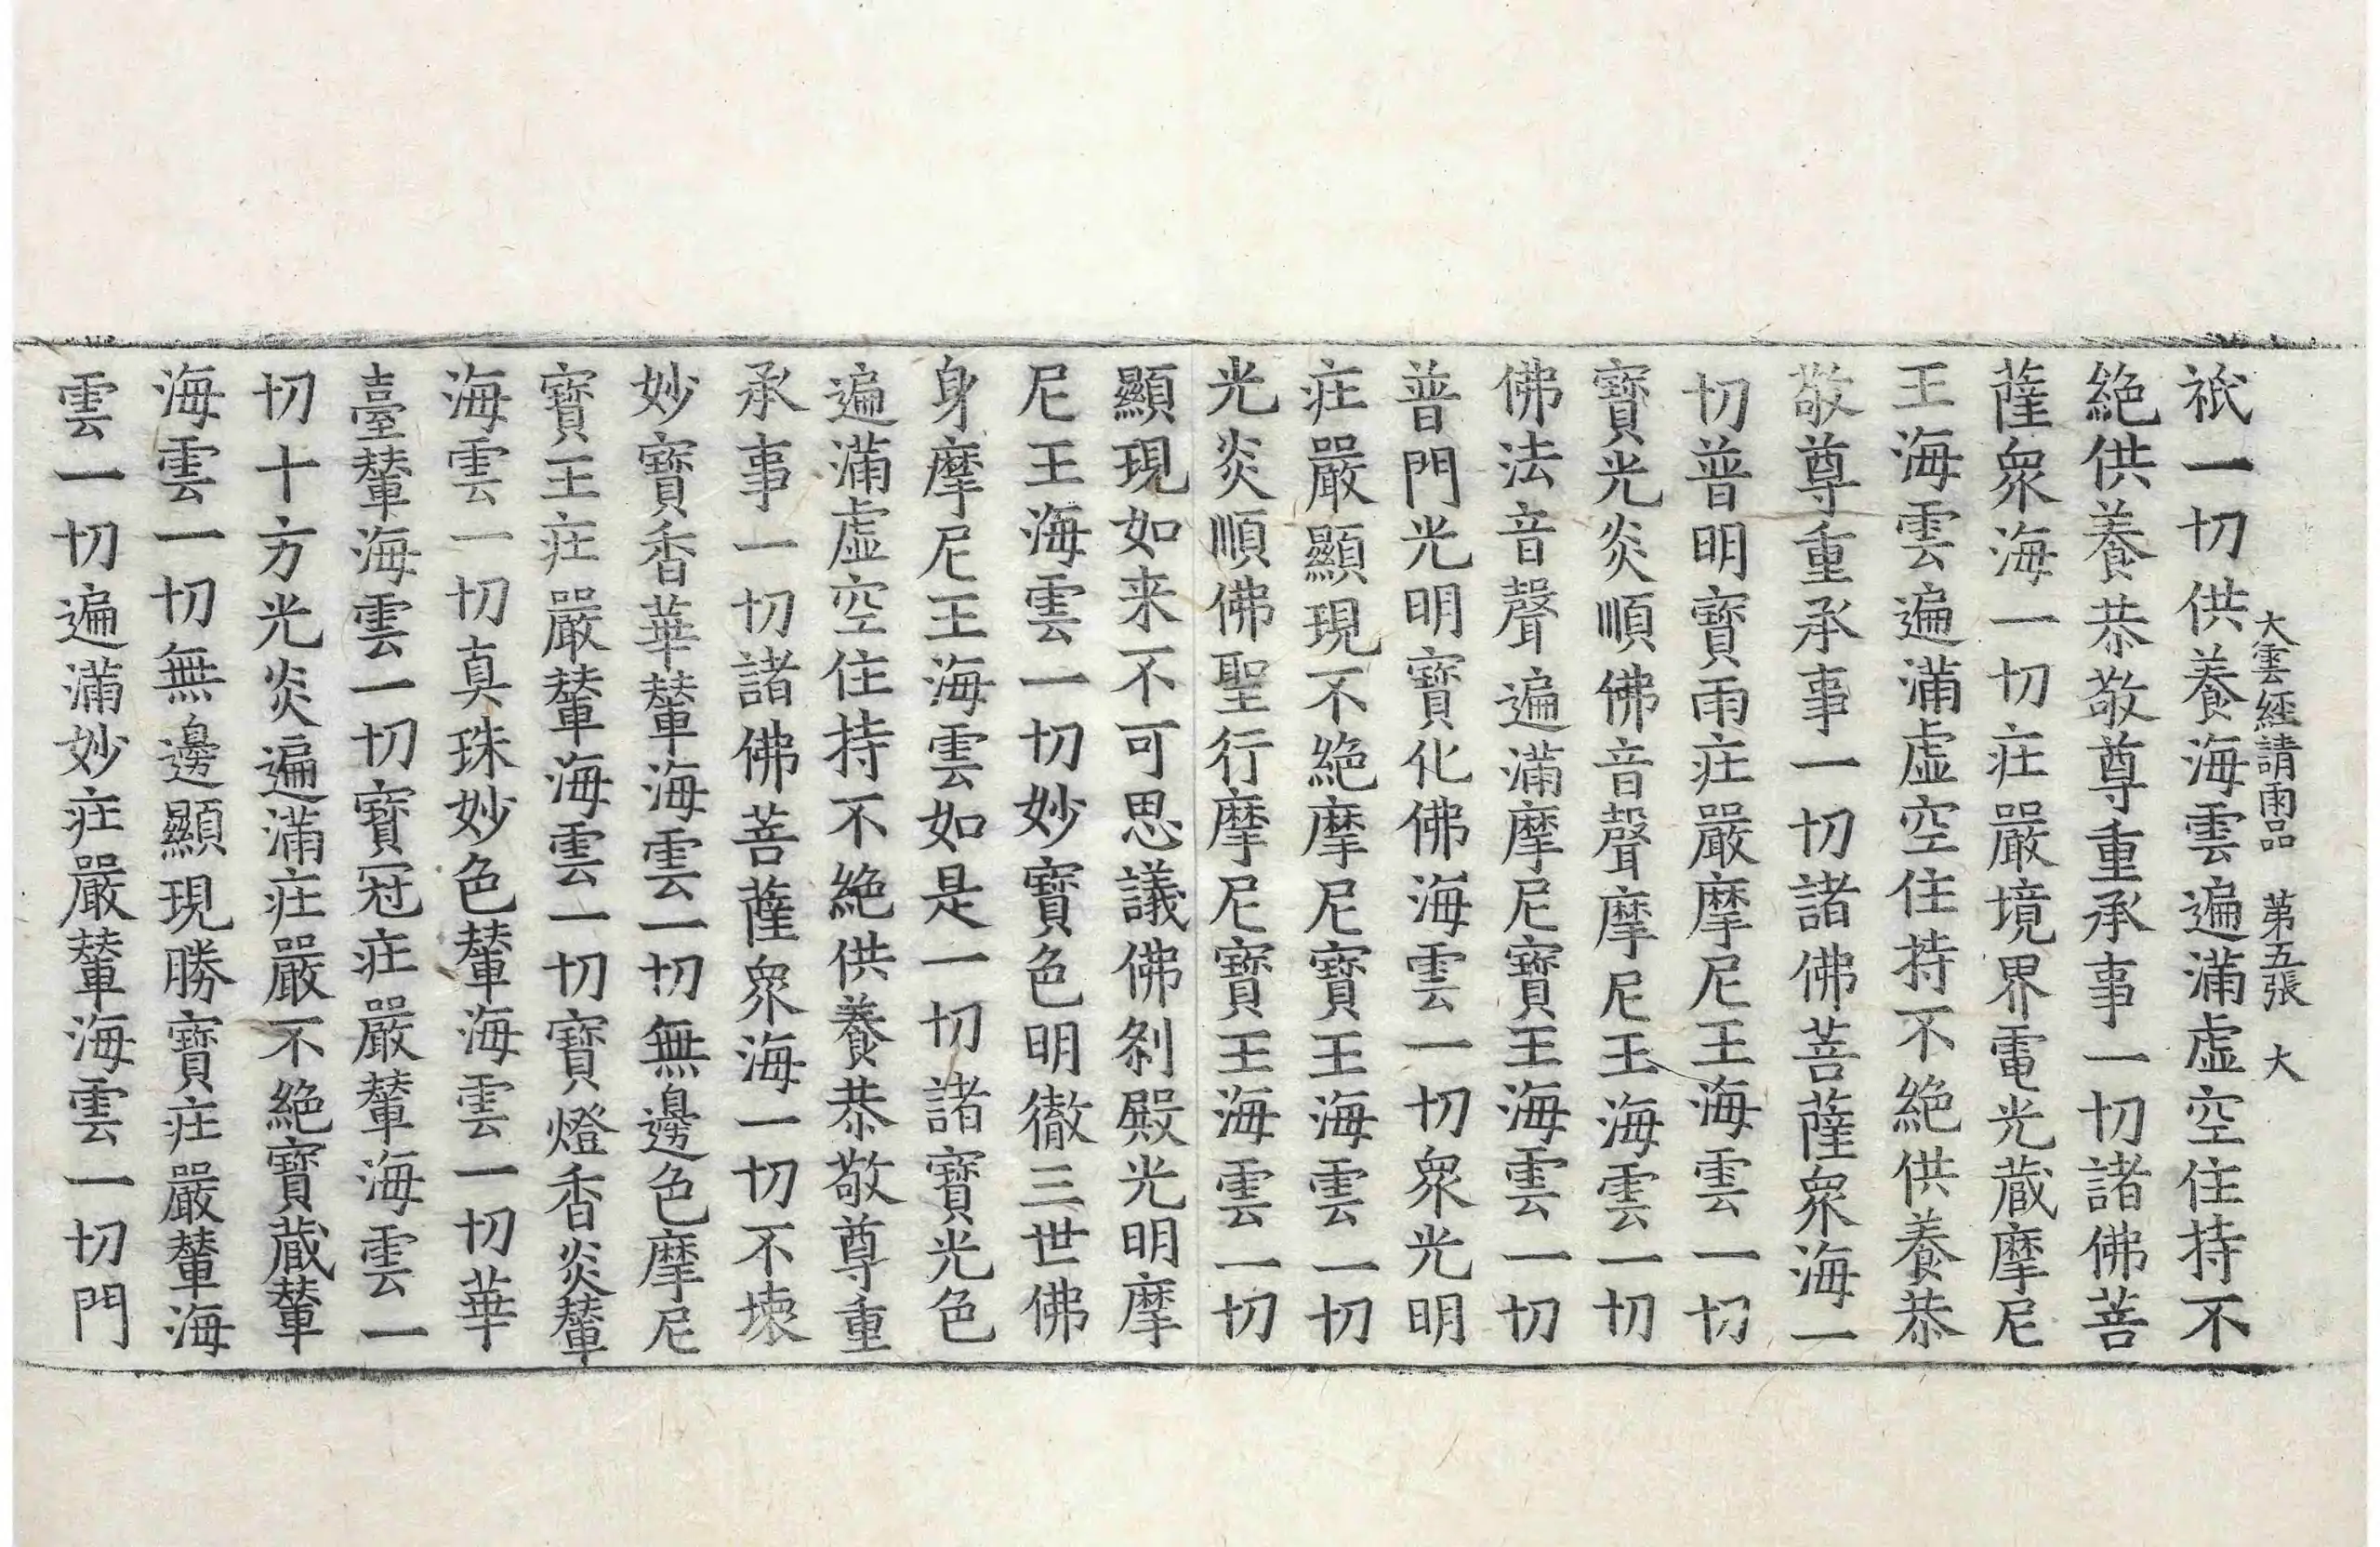 大雲經請雨品 第五張 大
祇一切供養海雲遍滿虛空住持不
絕供養恭敬尊重承事一切諸佛菩
薩衆海一切庄嚴境界電光蔵摩尼
王海雲遍滿虛空住持不絕供養恭
敬尊重承事一切諸佛菩薩衆海一
切普明寶雨庄嚴摩尼王海雲一切
寶光炎順佛音聲摩尼王海雲一切
佛法音聲遍滿摩尼寶王海雲一切
普門光明寶化佛海雲一切衆光明
庄嚴顯現不絕摩尼寶王海雲一切
光炎順佛聖行摩尼寶王海雲一切
顯現如来不可思議佛刹殿光明摩
尼王海雲一切妙寶色明徹三世佛
身摩尼王海雲如是一切諸寶光色
遍滿虛空住持不絕供養恭敬尊重
承事一切諸佛菩薩衆海一切不壊
妙寶香華輦海雲一切無邊色摩尼
寶王庄嚴輦海雲一切寶燈香炎輦
海雲一切真珠妙色輦海雲一切華
臺輦海雲一切寶冠庄嚴輦海雲一
切十方光炎遍滿庄嚴不絕寶蔵輦
海雲一切無邊顯現勝寶庄嚴輦海
雲一切遍滿妙庄嚴輦海雲一切門